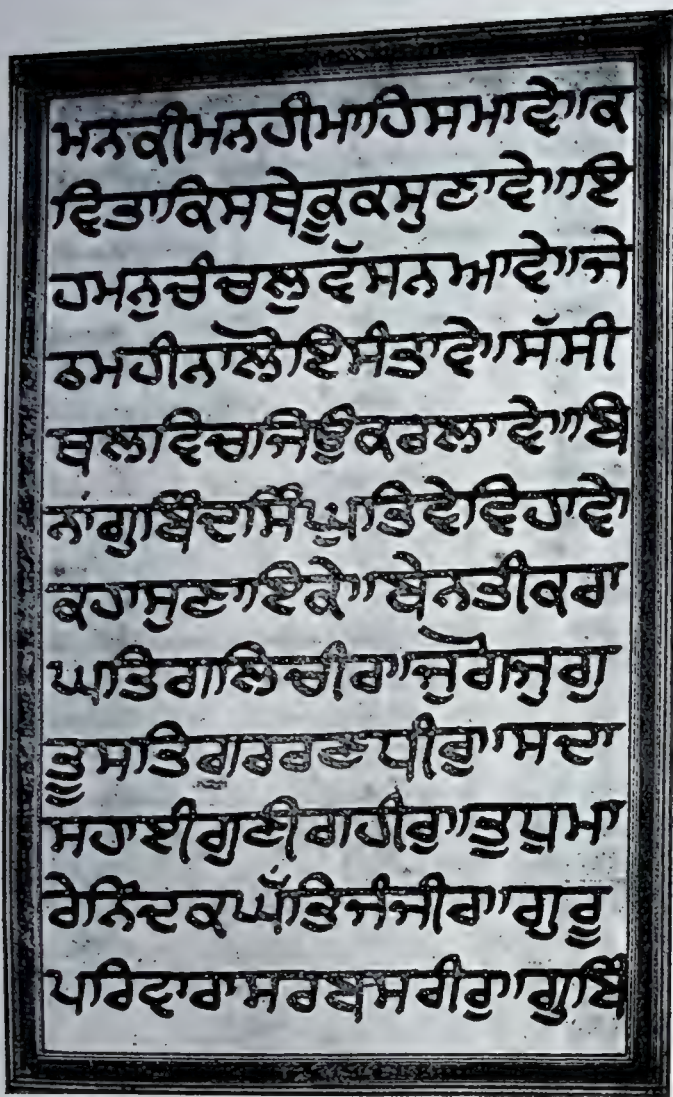 ਮਨਕੀਮਨਹੀਮਾਹਿਸਮਾਵੇ॥ਕ
ਵਿਤਾਕਿਸਥੇਕੂਕਸੁਣਾਵੇ॥ਇ
ਹਮਨੁਚੰਚਲੁਵੱਸਨਆਵੇ॥ਜੇ
ਠਮਹੀਨਾਲੋਇਸੰਤਾਵੇ॥ਸੱਸੀ
ਥਲਾਵਿਚਜਿਉਕਰਲਾਵੇ॥ਬਿ
ਨਾਂਗੁਬਿੰਦਸਿੰਘਤਿਵੇਵਿਹਾਵੇ
ਕਹਾਸੁਣਾਇਕੇ॥ਬੇਨਤੀਕਰਾ
ਘਤਿਗਲਿਚੀਰਾ॥ਜੁਗਜੁਗੁ
ਤੂਸਤਿਗੁਰਰਣਧੀਰੁ॥ਸਦਾ
ਸਹਾਈਗੁਣੀਗਹੀਰੁ॥ਤੁਧੁਮਾ
ਰੇਨਿੰਦਕਘੱਤਿਜੰਜੀਰਾ॥ਗੁਰੂ
ਪਰਿਵਾਰਾਸਰਬਸਰੀਰੁ॥ਗੁਬਿੰ